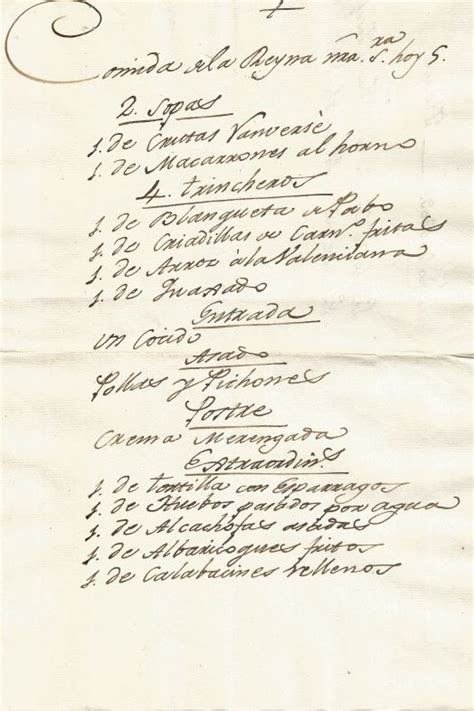 Comida de la Reyna nra. Sra. hoy 5.
2. Sopas
1. de Crutas Vanversè
1. de Macarrones al horno
4. trincheros
1. de Blanqueta de Pabo
1. de Criadillas de Carno. fritas
1. de Arroz à la Valenciana
1. de
Entrada
un Cocido
Asado
Pollas y Pichones
Postre
Crema Merengada
Estraordins.
1. de tortilla con Esparragos
1. de Huebos pasados por agua
1. de Alcachofas asadas
1. de Albaricoques fritos
1. de Calabacines rellenos